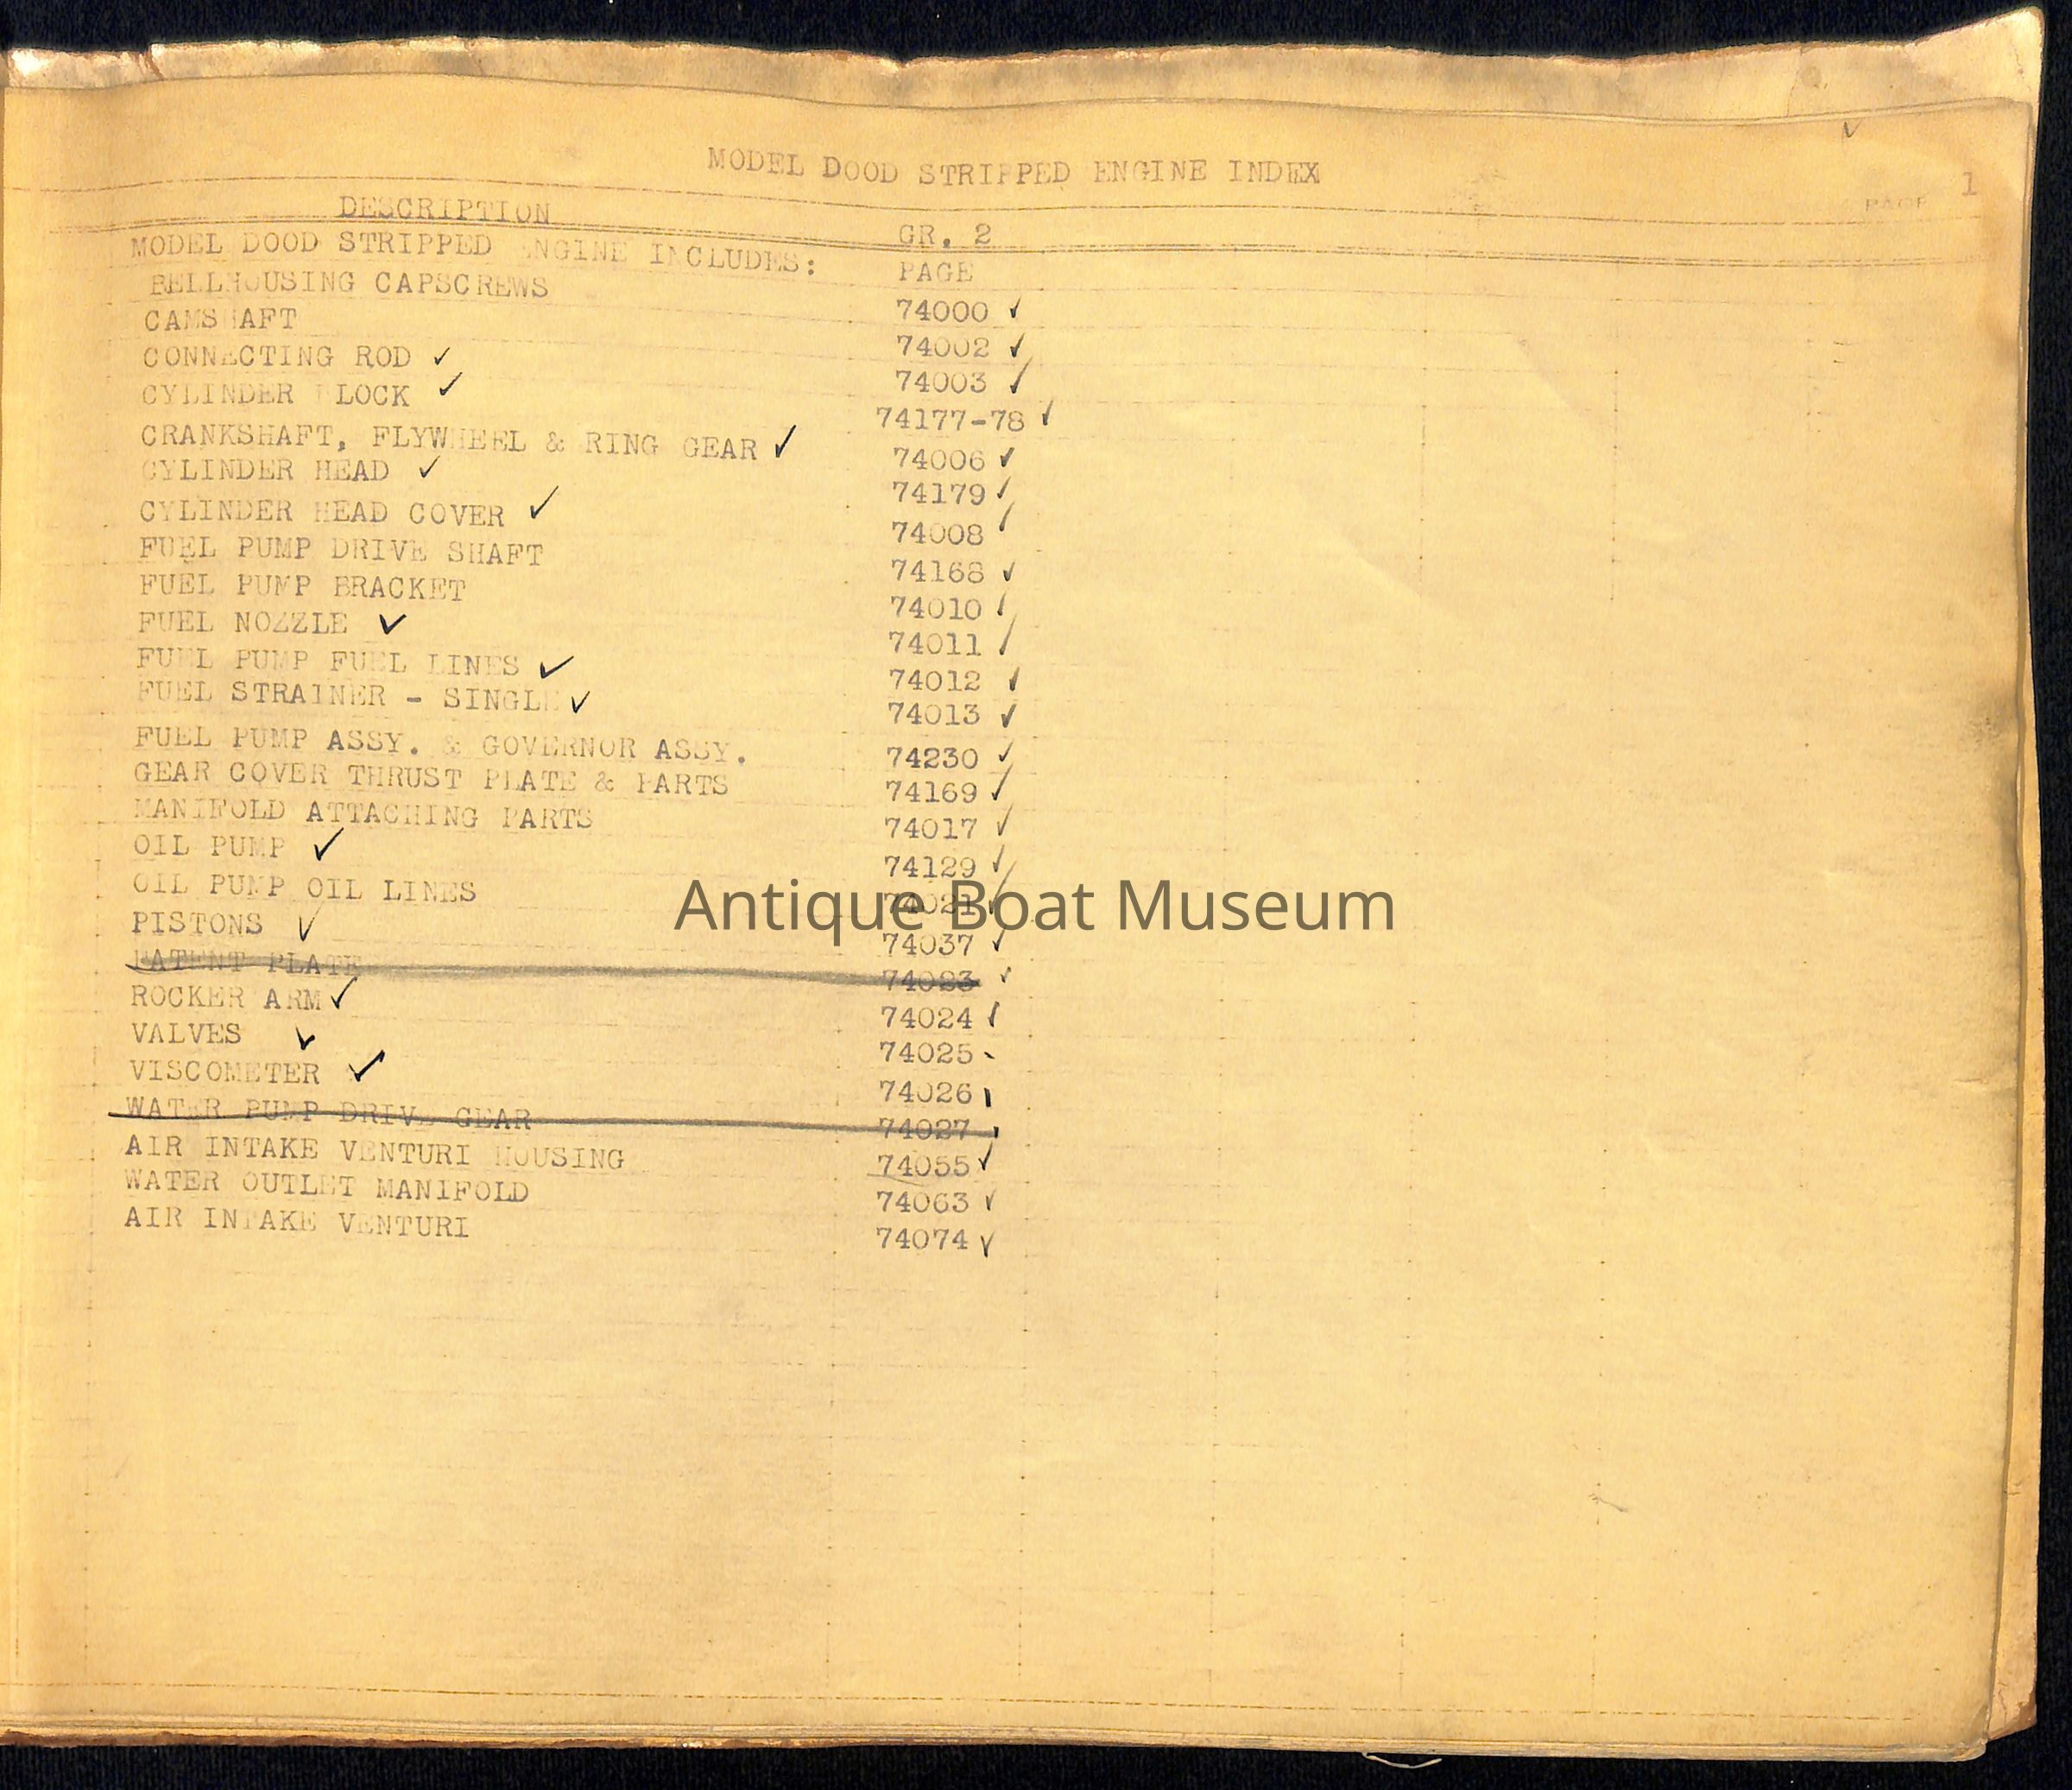 MODEL DOOD STRIPPED ENGINE INDEX
PAGE 1
DESCRIPTION GR. 2
MODEL DOOD STRIPPED ENGINE INCLUDES: PAGE
BELLHOUSING CAPSCREWS 74000 ✓
CAMSHAFT 74002 ✓
CONNECTING ROD ✓ 74003 ✓
CYLINDER BLOCK ✓ 74177-78 ✓
CRANKSHAFT, FLYWHEEL & RING GEAR ✓ 74006 ✓
CYLINDER HEAD ✓ 74179 ✓
CYLINDER HEAD COVER ✓ 74008 ✓
FUEL PUMP DRIVE SHAFT 74168 ✓
FUEL PUMP BRACKET 74010 ✓
FUEL NOZZLE ✓ 74011 ✓
FUEL PUMP FUEL LINES ✓ 74012 ✓
FUEL STRAINER - SINGLE ✓ 74013 ✓
FUEL PUMP ASSY. & GOVERNOR ASSY. 74230 ✓
GEAR COVER THRUST PLATE & PARTS 74169 ✓
MANIFOLD ATTACHING PARTS 74017 ✓
OIL PUMP ✓ 74129 ✓
OIL PUMP OIL LINES 74021 ✓
Antique Boat Museum
PISTONS ✓ 74037 ✓
PATENT PLATE 74023 ✓
ROCKER ARM ✓ 74024 ✓
VALVES ✓ 74025 ✓
VISCOMETER ✓ 74026 ✓
WATER PUMP DRIVE GEAR 74027 ✓
AIR INTAKE VENTURI HOUSING 74055 ✓
WATER OUTLET MANIFOLD 74063 ✓
AIR INTAKE VENTURI 74074 ✓